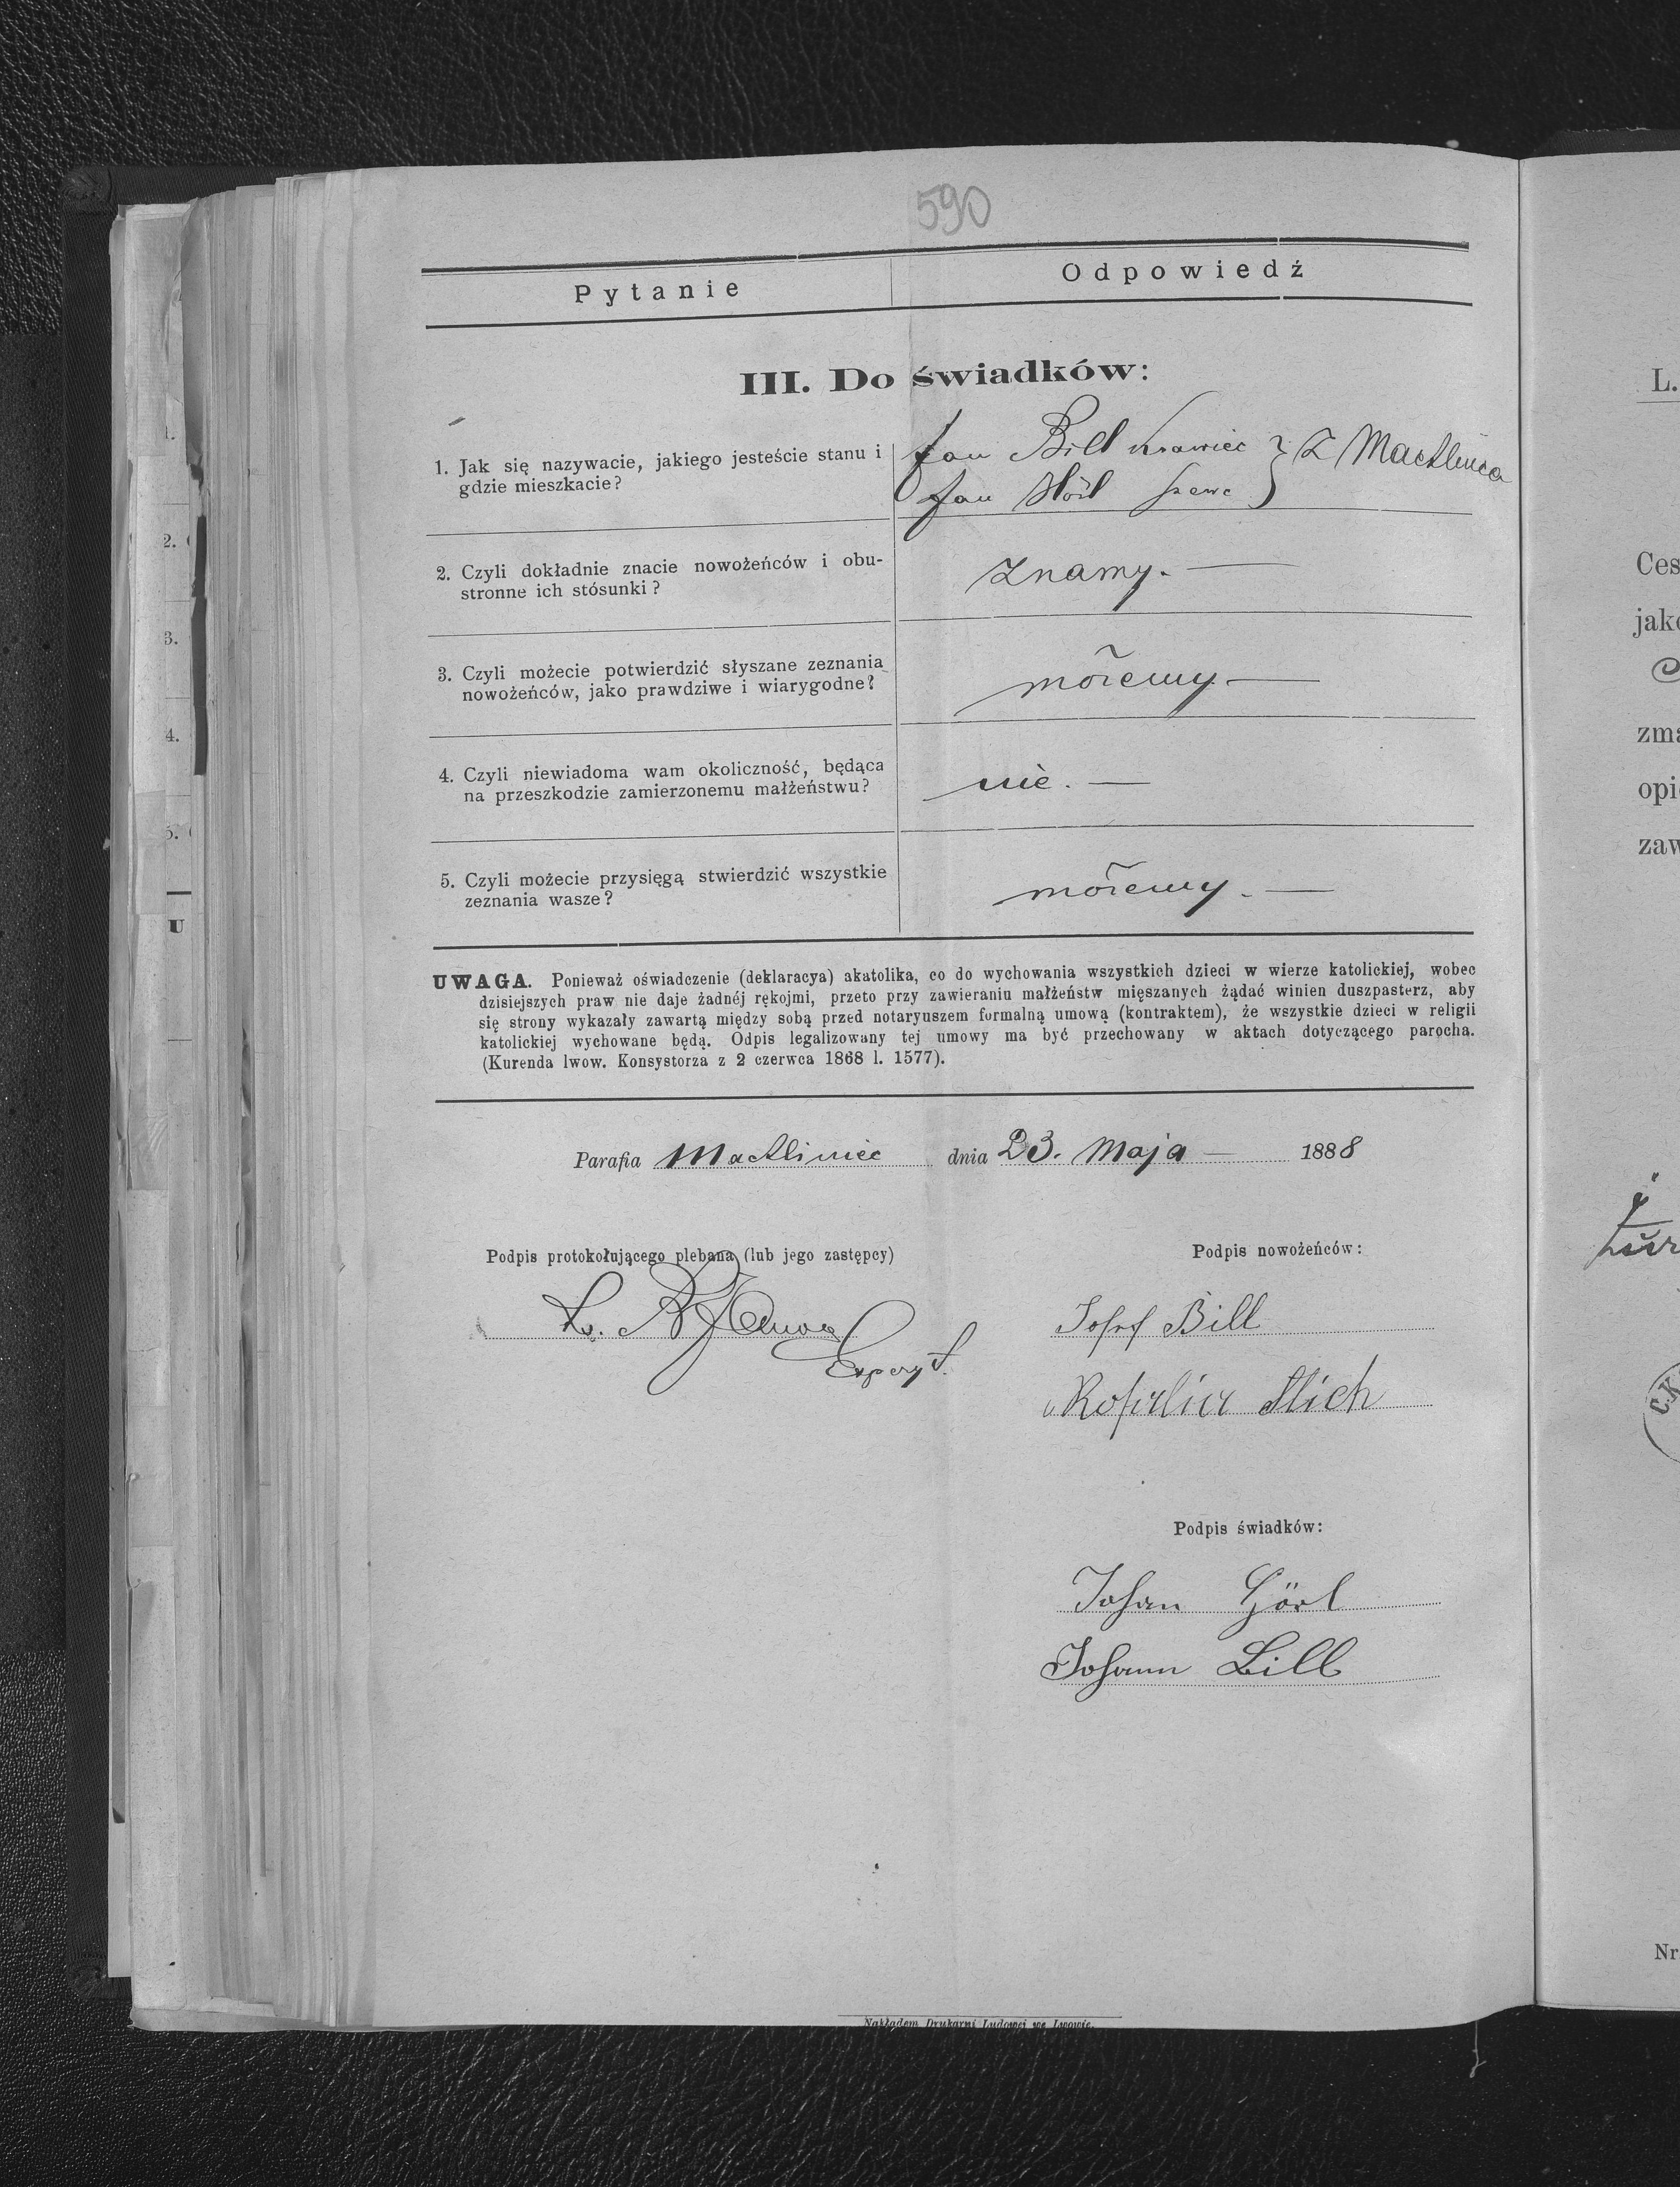 590
Pytanie
Odpowiedź
III. Do świadków:
1. Jak się nazywacie, jakiego jesteście stanu i
gdzie mieszkacie?
Jan Bill krawiec } z Machlińca
Jan Hörl szewc
2. Czyli dokładnie znacie nowożeńców i obu-
stronne ich stósunki?
znamy. —
3. Czyli możecie potwierdzić słyszane zeznania
nowożeńców, jako prawdziwe i wiarygodne?
możemy —
4. Czyli niewiadoma wam okoliczność, będąca
na przeszkodzie zamierzonemu małżeństwu?
nie. —
5. Czyli możecie przysięgą stwierdzić wszystkie
zeznania wasze?
możemy. —
UWAGA. Ponieważ oświadczenie (deklaracya) akatolika, co do wychowania wszystkich dzieci w wierze katolickiej, wobec
dzisiejszych praw nie daje żadnéj rękojmi, przeto przy zawieraniu małżeństw mięszanych żądać winien duszpasterz, aby
się strony wykazały zawartą między sobą przed notaryuszem formalną umową (kontraktem), że wszystkie dzieci w religii
katolickiej wychowane będą. Odpis legalizowany tej umowy ma być przechowany w aktach dotyczącego parocha.
(Kurenda lwow. Konsystorza z 2 czerwca 1868 l. 1577).
Parafia Machliniec dnia 23. Maja — 1888
Podpis protokołującego plebana (lub jego zastępcy)
Podpis nowożeńców:
Josef Bill
Expozyt.
Rosalia Stich
Podpis świadków:
Johan Hörl
Johann Bill
Nakładem Drukarni Ludowej we Lwowie.
1.
2.
3.
4.
5.
U
L.
Ces
jako
zma
opi
zaw
C.K.
Nr